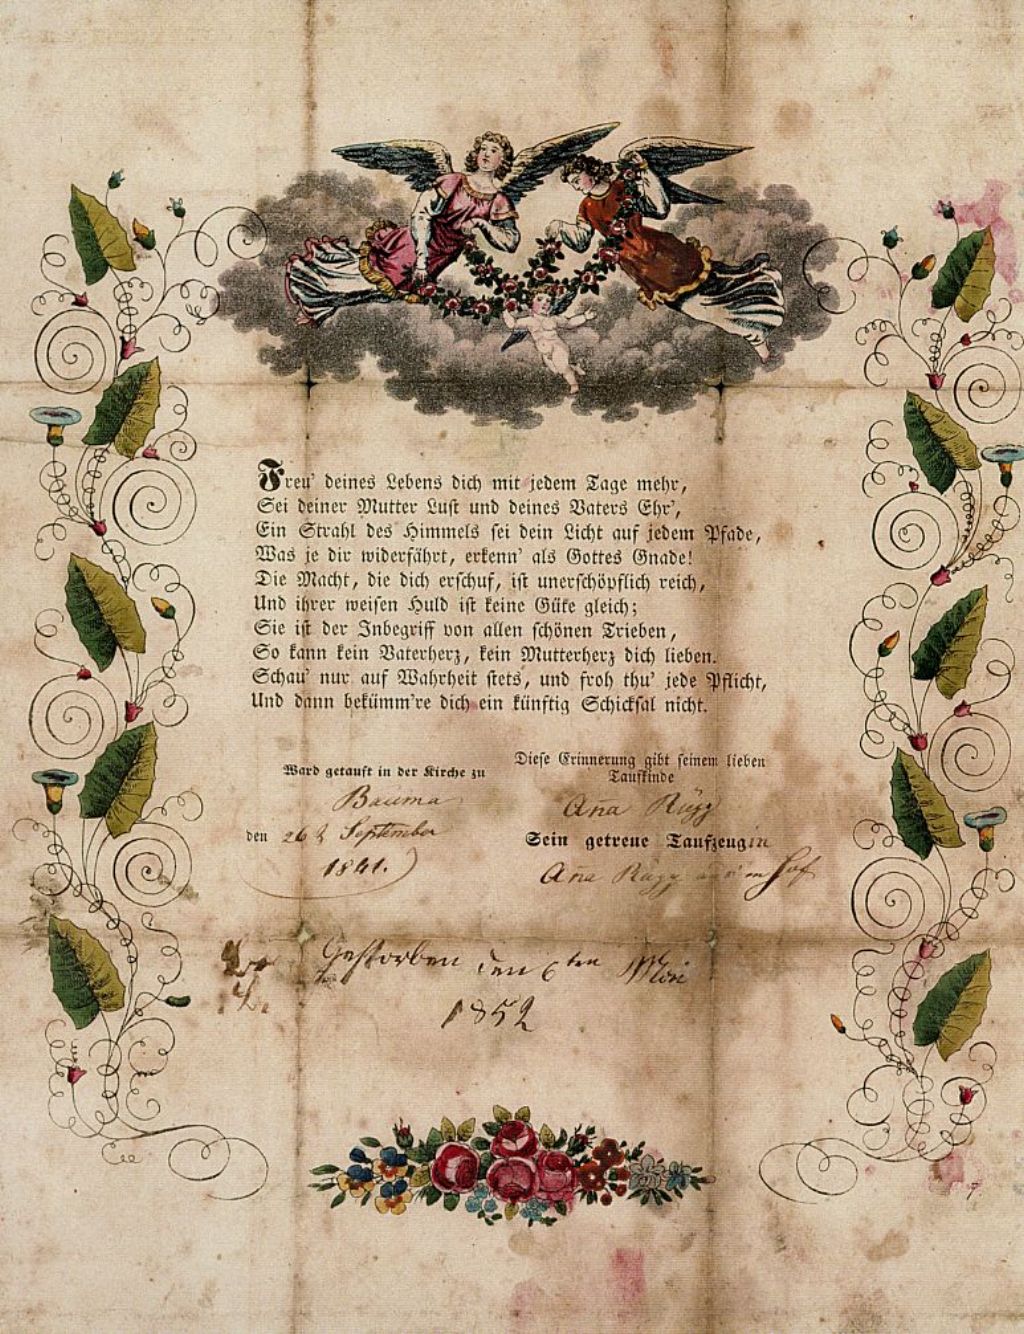 Freu' deines Lebens dich mit jedem Tage mehr,
Sei deiner Mutter Lust und deines Vaters Ehr',
Ein Strahl des Himmels sei dein Licht auf jedem Pfade,
Was je dir widerfährt, erkenn' als Gottes Gnade!
Die Macht, die dich erschuf, ist unerschöpflich reich,
Und ihrer weisen Huld ist keine Güte gleich;
Sie ist der Inbegriff von allen schönen Trieben,
So kann kein Vaterherz, kein Mutterherz dich lieben.
Schau' nur auf Wahrheit stets, und froh thu' jede Pflicht,
Und dann bekümm're dich ein künftig Schicksal nicht.
Ward getauft in der Kirche zu
Bauma
den 26 September
1841.
Diese Erinnerung gibt seinem lieben
Taufkinde
Ana Rügg
Sein getreue Taufzeugin
Ana Rügg Hof
Gestorben den 6ten Mai
1852